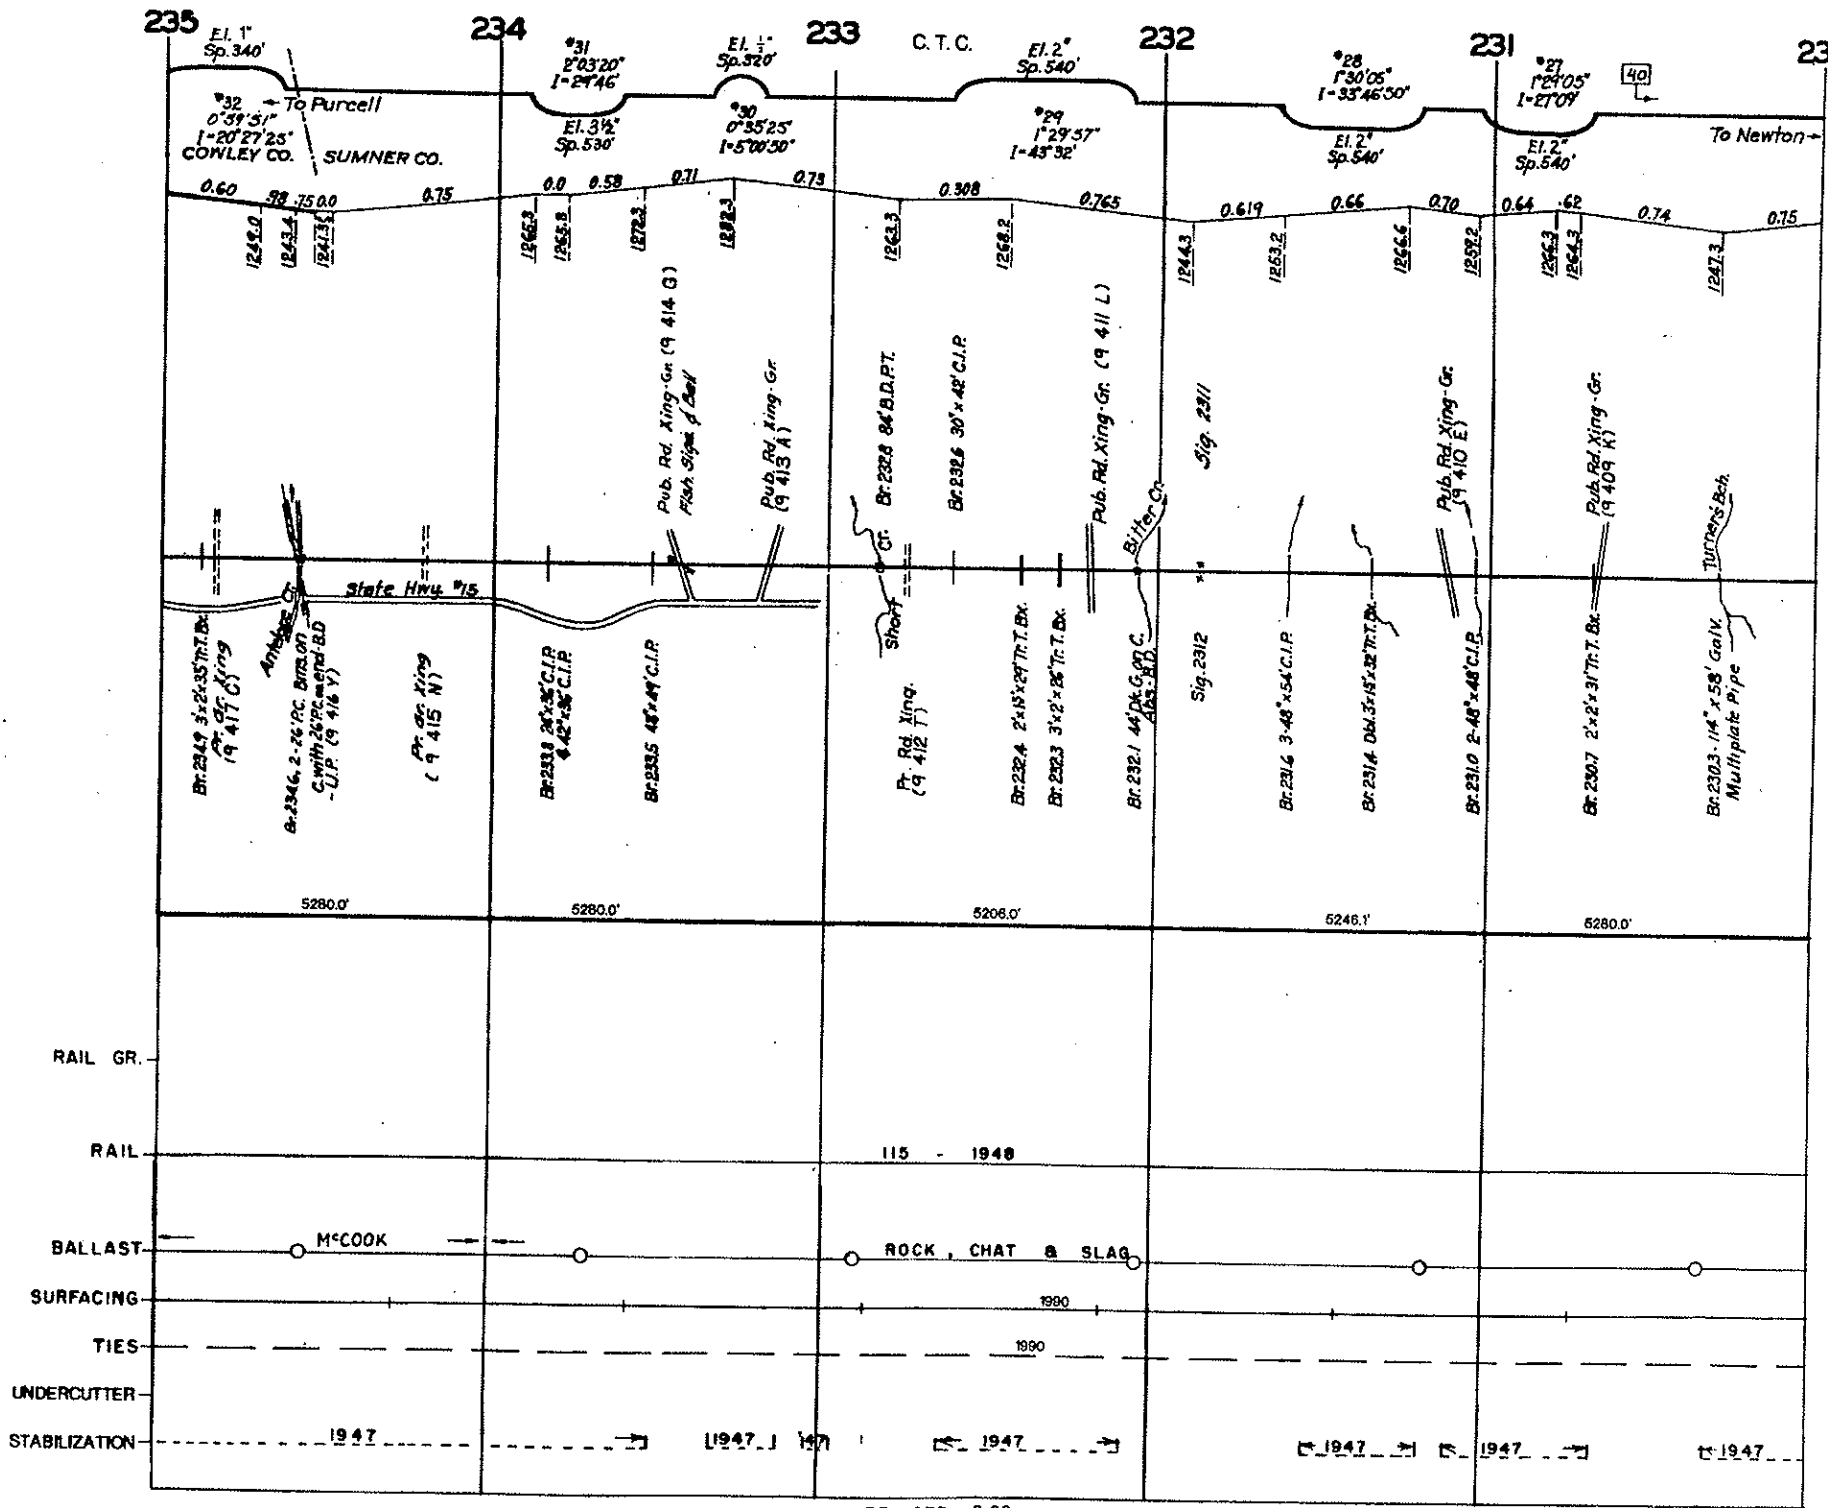 235
234
233
C.T.C.
232
231
23
El. 1"
Sp. 340'
#31
2°03'20"
I=29°46'
Sp. 320'
El. 2"
Sp. 540'
#28
1°30'05"
I=33°46'50"
#27
1°29'05"
I=27°09'
40
#32
0°59'51"
I=20°27'25"
← To Purcell
COWLEY CO.
SUMNER CO.
El. 3½"
Sp. 530'
#30
0°35'25"
I=5°00'50"
#29
1°29'57"
I=43°32'
El. 2"
Sp. 540'
El. 2"
Sp. 540'
To Newton →
0.60
.98
.75
0.0
0.75
0.0
0.58
0.71
0.73
0.308
0.765
0.619
0.66
0.70
0.64
.62
0.74
0.75
1249.0
1243.4
1241.3
1265.8
1265.8
1272.3
1282.3
1263.3
1268.2
1244.3
1253.2
1266.6
1259.2
1266.3
1264.3
1247.3
Pub. Rd. Xing-Gr. (9 414 G)
Flsh. Signl. & Bell
Pub. Rd. Xing-Gr.
(9 413 A)
Br. 232.8 84' B.D.P.T.
Br. 232.6 30" x 42' C.I.P.
Pub. Rd. Xing-Gr. (9 411 L)
Bitter Cr.
Sig. 2311
Pub. Rd. Xing-Gr.
(9 410 E)
Pub. Rd. Xing-Gr.
(9 409 K)
Turner's Bch.
State Hwy. #15
Short Cr.
Br. 234.9 3'x2'x35' Tr. T. Bx.
Pr. Gr. Xing
(9 417 C)
Antelope Cr.
Br. 234.6, 2-26' P.C. Bms. on
C. with 26' P.C. mend-B.D
-U.P. (9 416 Y)
Pr. Gr. Xing
(9 415 N)
Br. 233.8 24"x36' C.I.P.
& 42"x36' C.I.P.
Br. 233.5 48"x49' C.I.P.
Pr. Rd. Xing.
(9 412 T)
Br. 232.4 2'x1.5'x29' Tr. T. Bx.
Br. 232.3 3'x2'x26' Tr. T. Bx.
Br. 232.1 44' Dk. G. on C.
Abs.-B.D.
Sig. 2312
Br. 231.6 3-48"x54' C.I.P.
Br. 231.4 Dbl. 3'x1.5'x32' Tr. T. Bx.
Br. 231.0 2-48"x48' C.I.P.
Br. 230.7 2'x2'x31' Tr. T. Bx.
Br. 230.3-114" x 58' Galv.
Multiplate Pipe
5280.0'
5280.0'
5206.0'
5246.1'
5280.0'
RAIL GR.
RAIL
115 - 1948
BALLAST
McCOOK
ROCK, CHAT & SLAG
SURFACING
1990
TIES
1990
UNDERCUTTER
STABILIZATION
1947
1947
'47
1947
1947
1947
1947